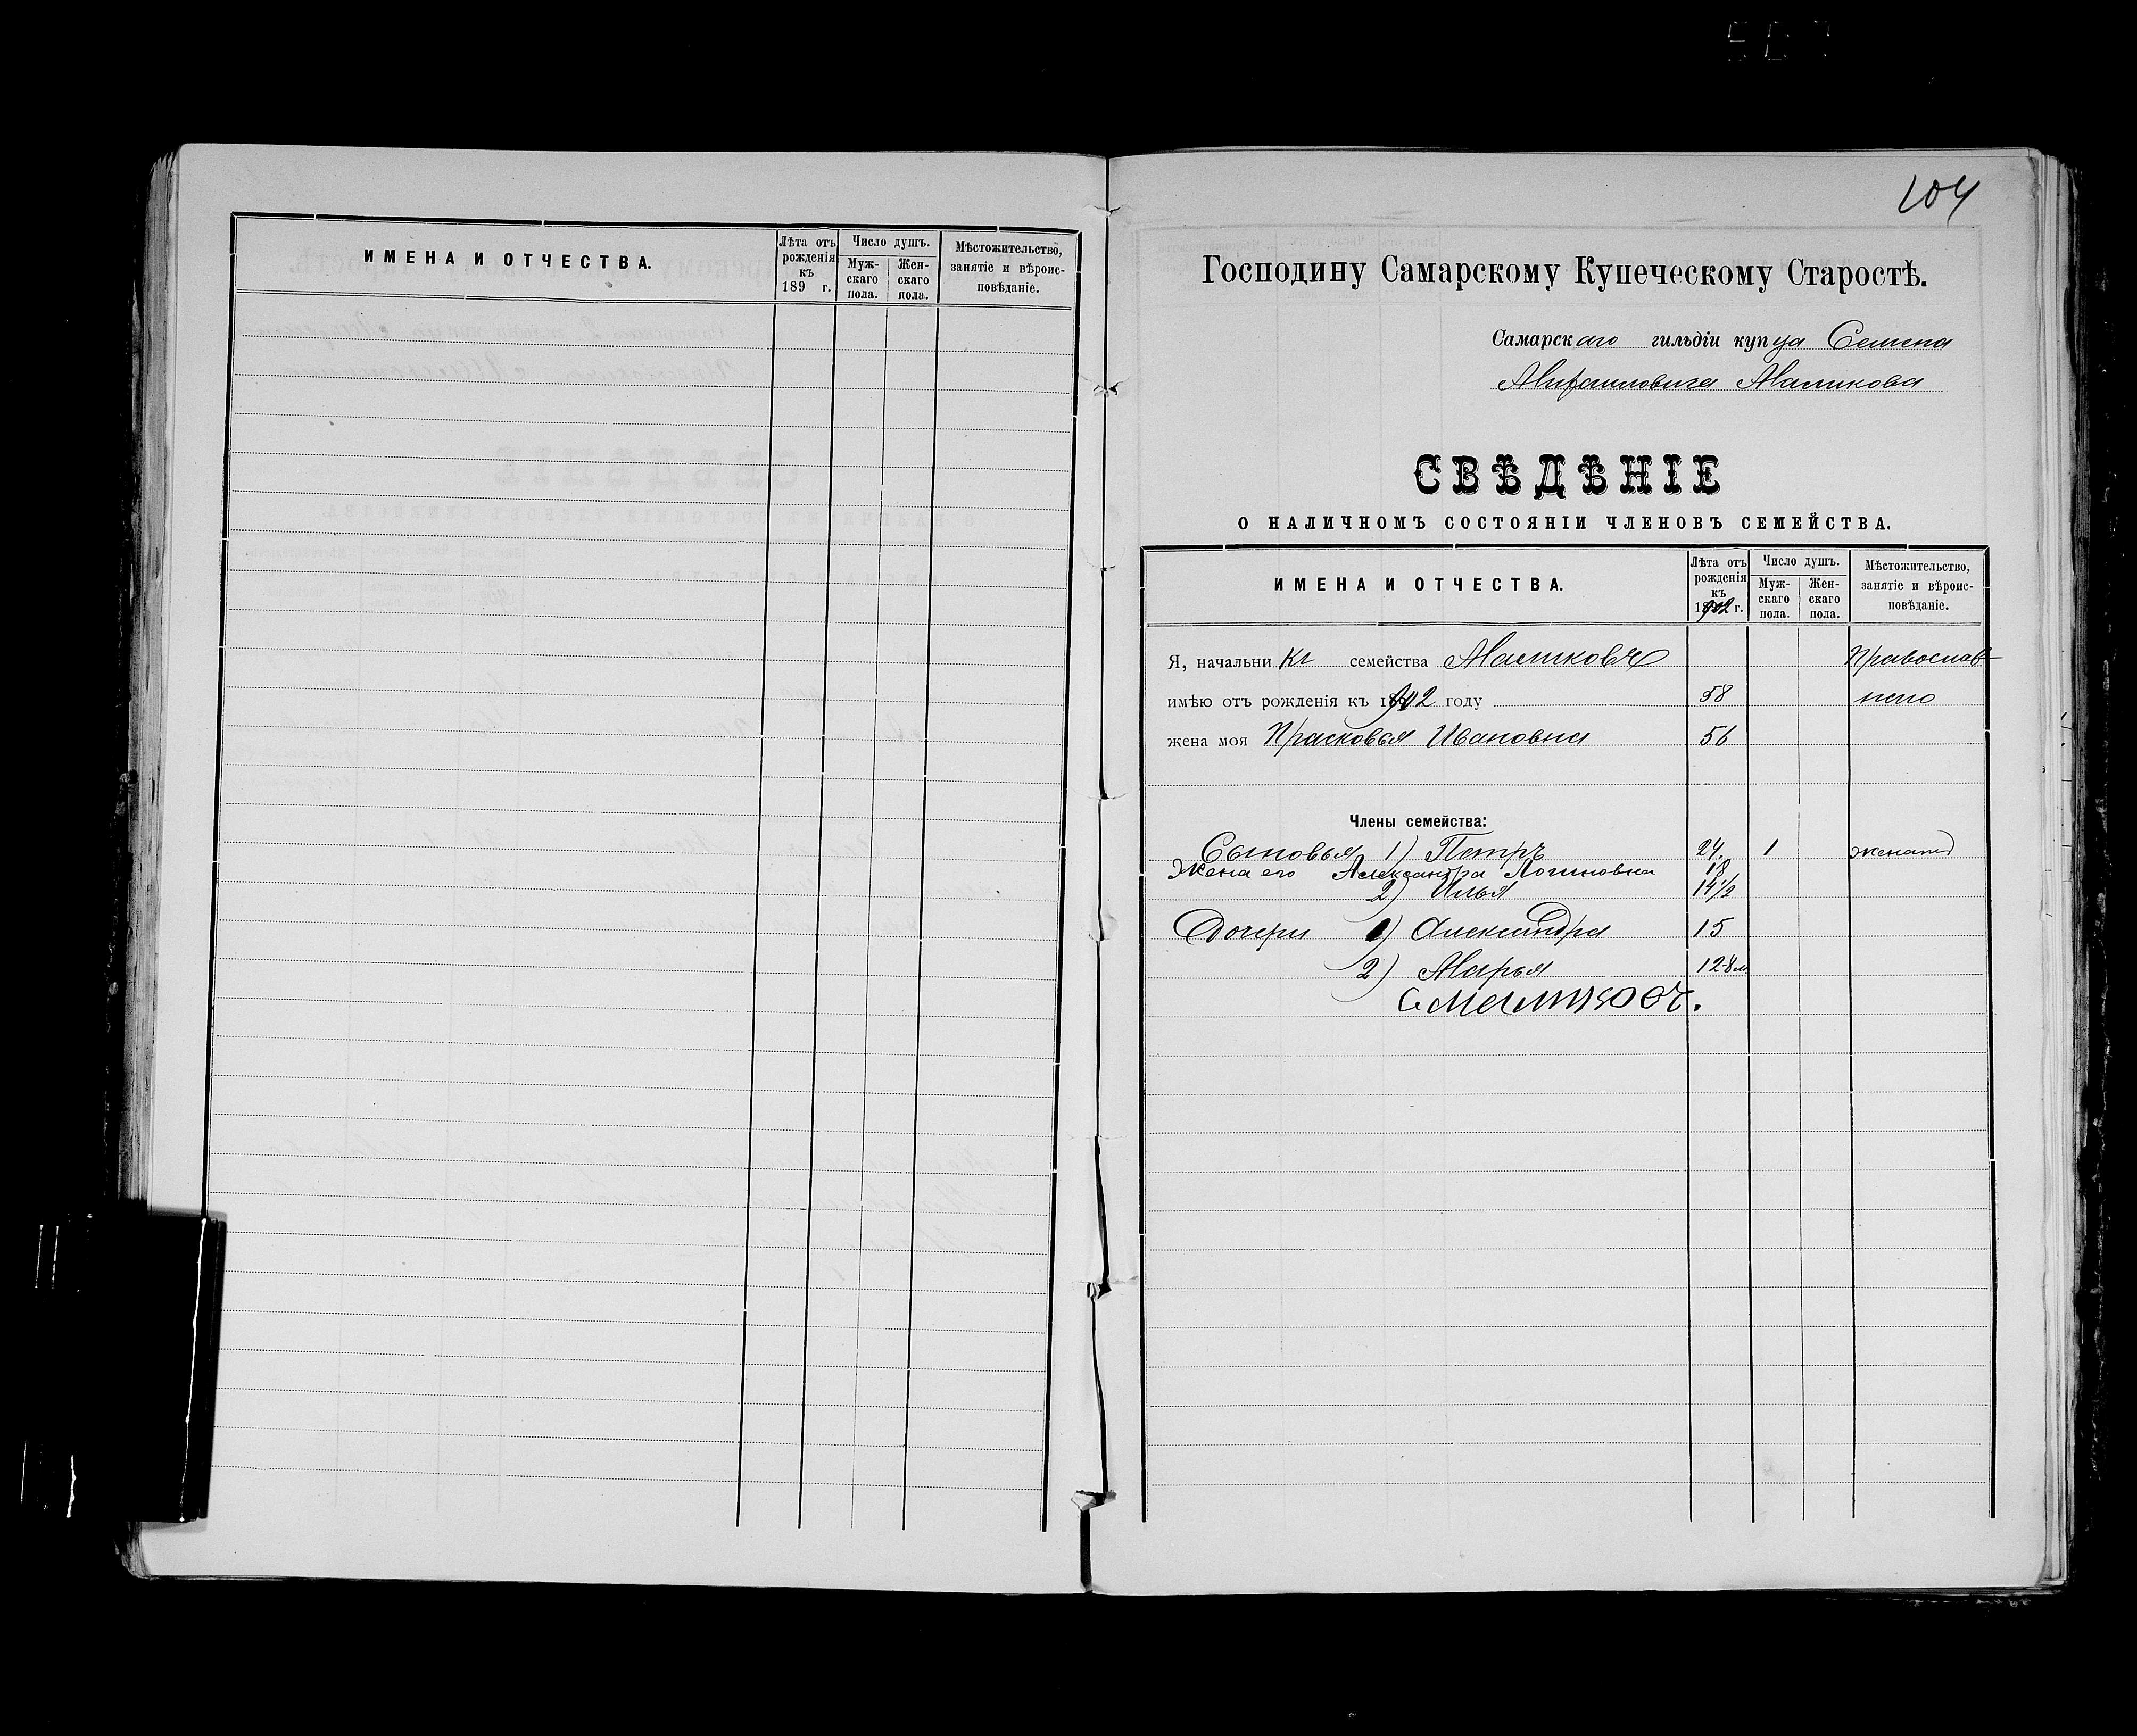 ИМЕНА И ОТЧЕСТВА.
Лѣта отъ рожденія къ 189 г.
Число душъ.
Мужскаго пола.
Женскаго пола.
Мѣстожительство, занятіе и вѣроисповѣданіе.
104
Господину Самарскому Купеческому Старостѣ.
Самарскаго гильдіи купца Семена
Михаиловича Маликова
СВѢДѢНІЕ
О НАЛИЧНОМЪ СОСТОЯНІИ ЧЛЕНОВЪ СЕМЕЙСТВА.
ИМЕНА И ОТЧЕСТВА.
Лѣта отъ рожденія къ 1902 г.
Число душъ.
Мужскаго пола.
Женскаго пола.
Мѣстожительство, занятіе и вѣроисповѣданіе.
Я, начальникъ семейства Маликовъ Православ-
имѣю отъ рожденія къ 1902 году 58 наго
жена моя Прасковья Ивановна 56
Члены семейства:
Сыновья 1) Петръ 24. 1 женатъ
Жена его Александра Логиновна 18
2) Илья 14 1/2
Дочери 1) Александра 15
2) Марья 12-8 м
С Маликовъ.